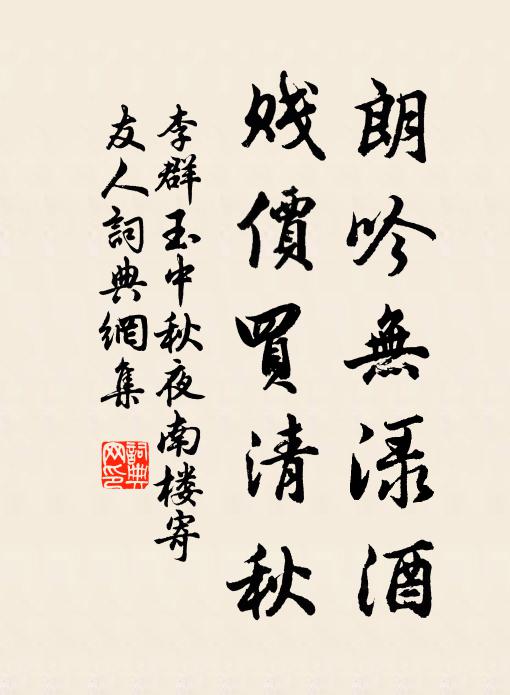 朗吟無渌酒
賤價買清秋
李群玉中秋夜南楼寄
友人詞典網集
詞典
网印